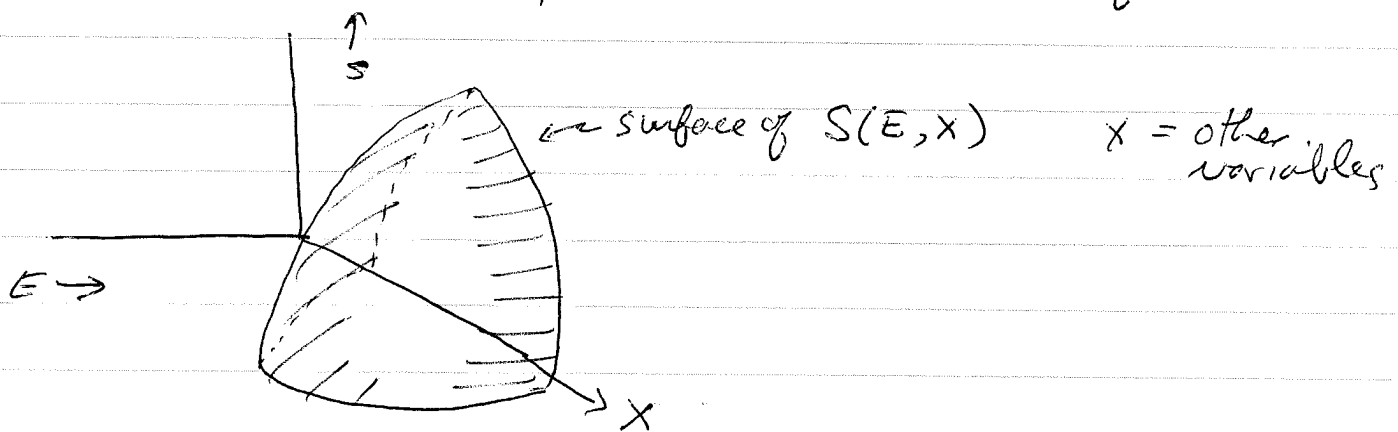 ↑
S
← surface of S(E,X) X = other variables
E →
X